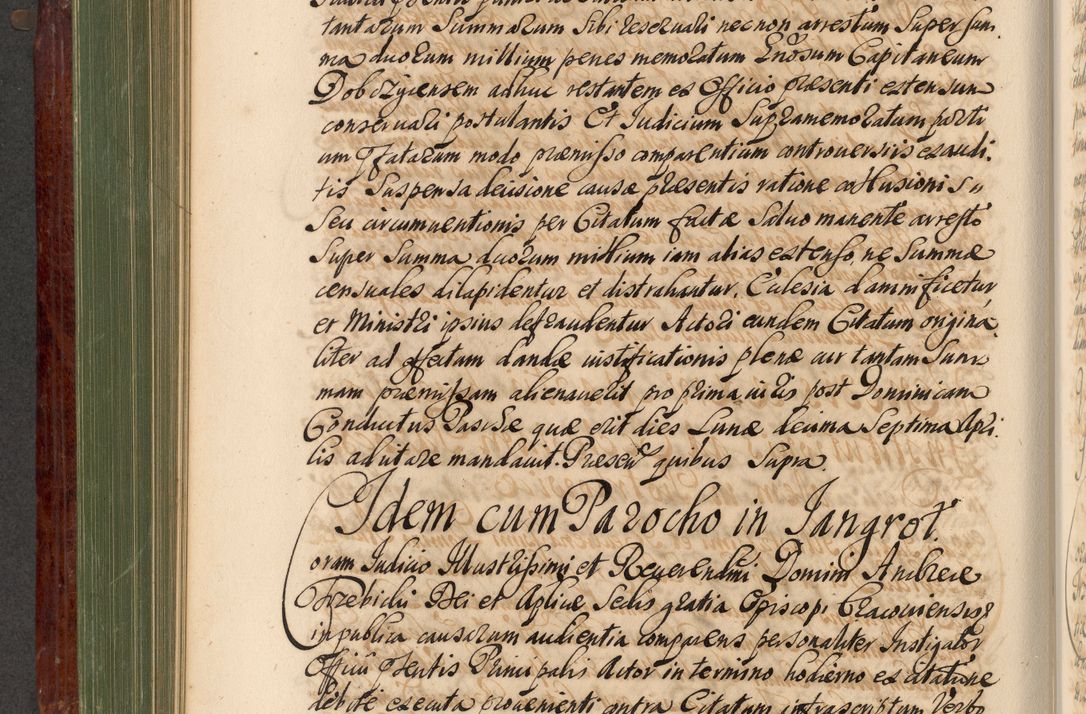 tantarum Summarum Sibi reservari necnon arrestum Super Sum
ma duorum millium penes memoratum Gnosum Capitaneum
Dobczycensem adhuc restantem ex Officio præsenti extensum
conservari postulantis Et Judicium Supramemoratum parti
um Pfatarum modo præmisso comparentium controversiis exaudi-
tis Suspensa decisione causæ præsentis ratione collusionis
Seu circumventionis per Citatum factæ Salvo manente arresto
Super Summa duorum millium iam alias extenso ne Summæ
censuales dilapidentur et distrahantur, Ecclesia damnificetur
et Ministri ipsius defraudentur Actori eundem Citatum origina
liter ad effectum dandæ iustificationis plenæ cur tantam Sum
mam præmissam alienaverit pro prima iuris post Dominicam
Conductus Paschæ quæ erit dies Lunæ decima Septima Apri
lis adcitare mandavit. Presen. quibus Supra.
Idem cum Parocho in Jangrot.
oram Judicio Illustrissimi et Reverendmi Domini Andreæ
Trzebicki Dei et Aplicæ Sedis gratia Episcopi Cracoviensis
in publica causarum audientia comparens personaliter Instigator
Officii Pſentis Principalis Actor in termino hodierno ex citatione
debite executa provenienti contra Citatum infrascriptum Verbo